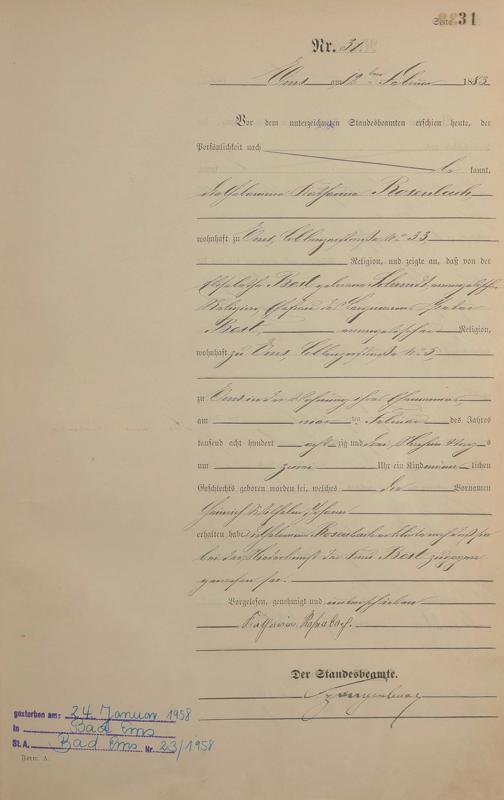 Seite 31
Nr. 31.
Ems am 12ten Februar 1883
Vor dem unterzeichneten Standesbeamten erschien heute, der
Persönlichkeit nach
be kannt,
die Hebamme Katharina Rosenbach
wohnhaft zu Ems, Coblenzerstraße No 33
Religion, und zeigte an, daß von der
Best geborene Schmidt, evangelischer
Religion, Ehefrau des Bergmannes Best,
evangelischer Religion,
wohnhaft zu Ems, Coblenzerstraße No 5,
zu Ems in der Wohnung ihres Ehemannes,
am ten Februar des Jahres
tausend acht hundert acht zig und drei s
um Uhr ein Kind männ lichen
Geschlechts geboren worden sei, welches Vornamen
Heinrich Wilhelm Johann
erhalten habe. Rosenbach erklärte, daß sie
bei der Niederkunft der Frau Best zugegen
gewesen sei.
Vorgelesen, genehmigt und unterschrieben
Katharina Rosenbach.
Der Standesbeamte.
gestorben am: 24. Januar 1958
in Bad Ems
St.A. Bad Ems Nr. 23/1958
Form. A.